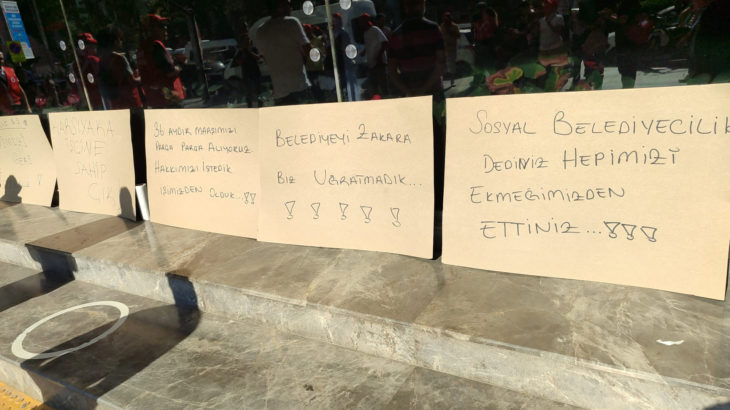 KARŞIYAKA
BÖNE
SAHİP
ÇIK
36 AYDIR MAAŞIMIZI
PARÇA PARÇA ALIYORUZ
HAKKIMIZI İSTEDİK
İŞİMİZDEN OLDUK...!!
BELEDİYEYİ ZARARA
BİZ UĞRATMADIK...
! ! ! ! !
SOSYAL BELEDİYECİLİK
DEDİNİZ HEPİMİZİ
EKMEĞİMİZDEN
ETTİNİZ...!!!